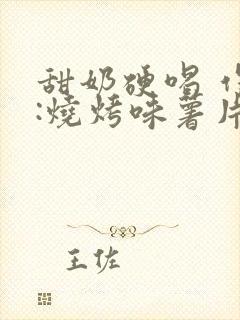 甜奶硬唱
:燒烤味薯片
王佐